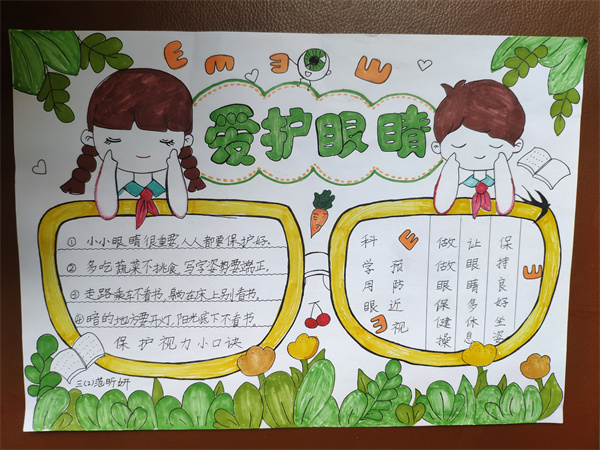 爱护眼睛
① 小小眼睛很重要,人人都要保护好.
② 多吃蔬菜不挑食,写字姿势要端正.
③ 走路乘车不看书,躺在床上别看书.
④ 暗的地方要开灯,阳光底下不看书.
保护视力小口诀
科学用眼
预防近视
做做眼保健操
让眼睛多休息
保持良好坐姿
三(2)范昕妍